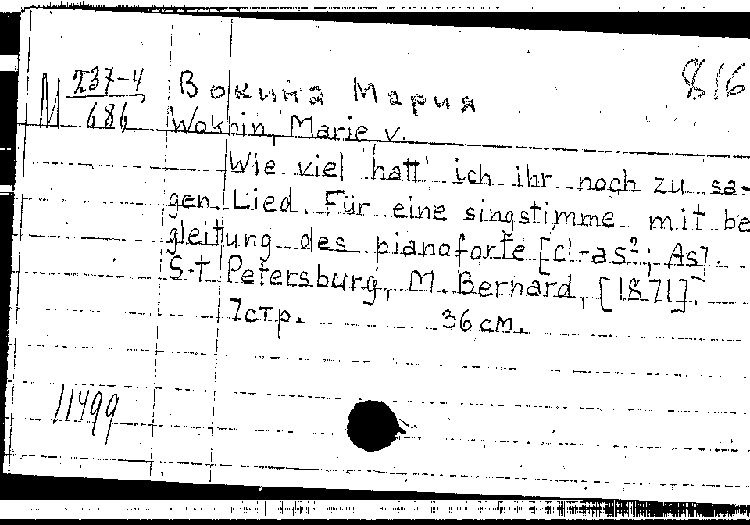 816
М 237-4
686
Вокина Мария
Wokhin, Marie v.
Wie viel hatt' ich ihr noch zu sa-
gen. Lied. Für eine singstimme mit be
gleitung des pianoforte [c¹-as²; As].
S-T Petersburg, M. Bernard, [1871].
7стр. 36 см.
11499